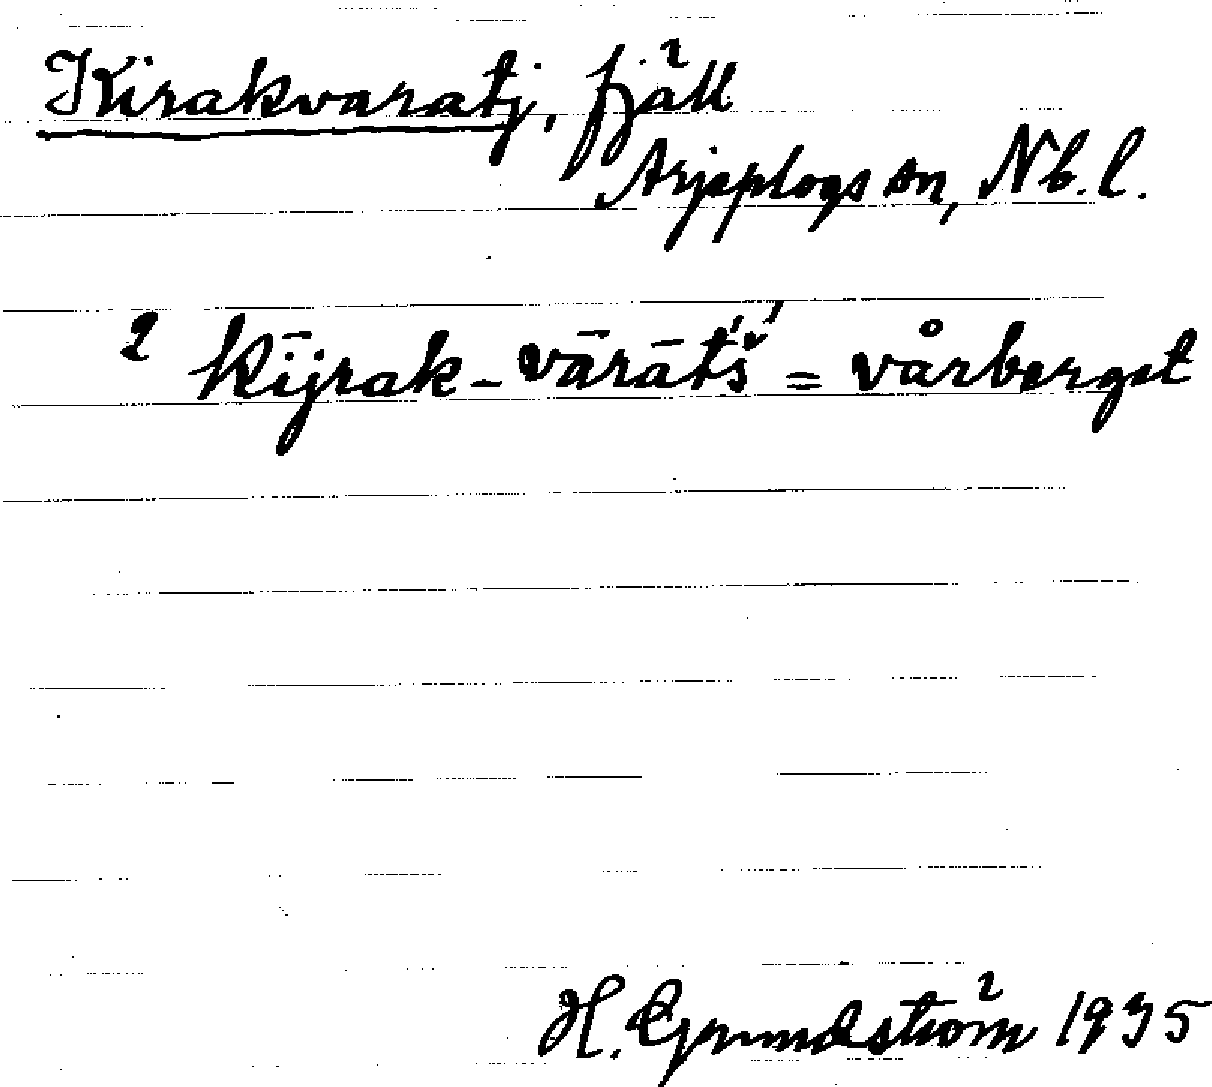 Kirakvaratj, fjäll
Arjeplogs sn, Nb. l.
2 kījrak-vārātš́ = vårberget
H. Grundström 1935